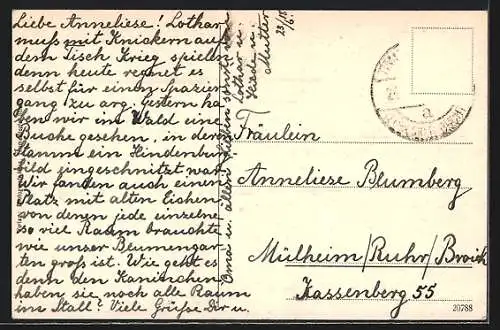 Liebe Anneliese! Lothar
muß mit Knickern auf
dem Tisch Krieg spielen
denn heute regnet es
selbst für einen Spazier
gang zu arg. Gestern ha
ben wir im Wald eine
Buche gesehen, in deren
Stamm ein Hindenburg
bild eingeschnitzt war.
Wir fanden auch einen
Platz mit alten Eichen
von denen jede einzelne
so viel Raum brauchte
wie unser Blumengar
ten groß ist. Wie geht es
denn den Kaninchen
haben sie noch alle Raum
im Stall? Viele Grüße Dir u.
Oma u. allen Lieben
Lothar u.
u.
Mutter
Fräulein
Anneliese Blumberg
Mülheim/Ruhr/Broich
Kassenberg 55
20788